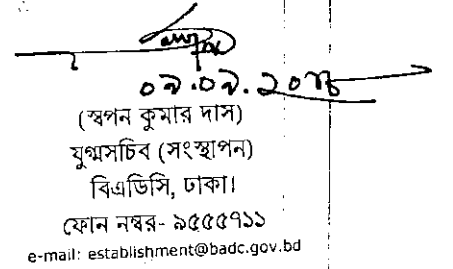 ০৯.০৯.২০১৮
(স্বপন কুমার দাস)
যুগ্মসচিব (সংস্থাপন)
বিএডিসি, ঢাকা।
ফোন নম্বর- ৯৫৫৫৭১১
e-mail: establishment@badc.gov.bd